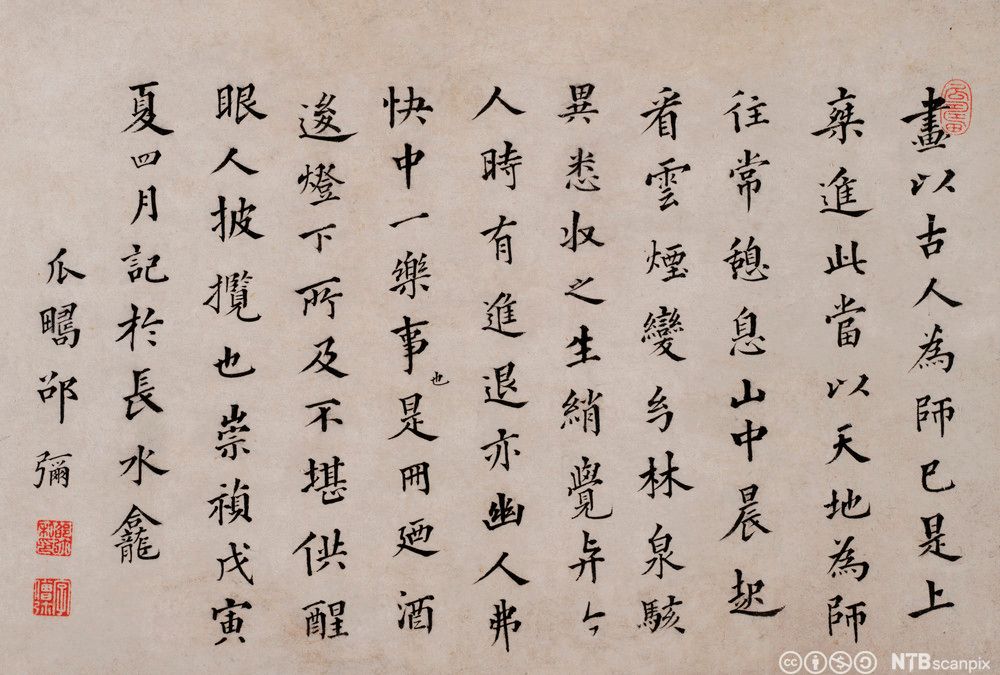 畫以古人為師巳是上
乘進此當以天地為師
往常憩息山中晨起
看雲煙變幻林泉駭
異悉收之生綃覺與今
人時有進退亦幽人弗
快中一樂事也是冊廼酒
後燈下所及不堪供醒
眼人披攬也崇禎戊寅
夏四月記於長水龕
瓜疇邵彌
NTB scanpix